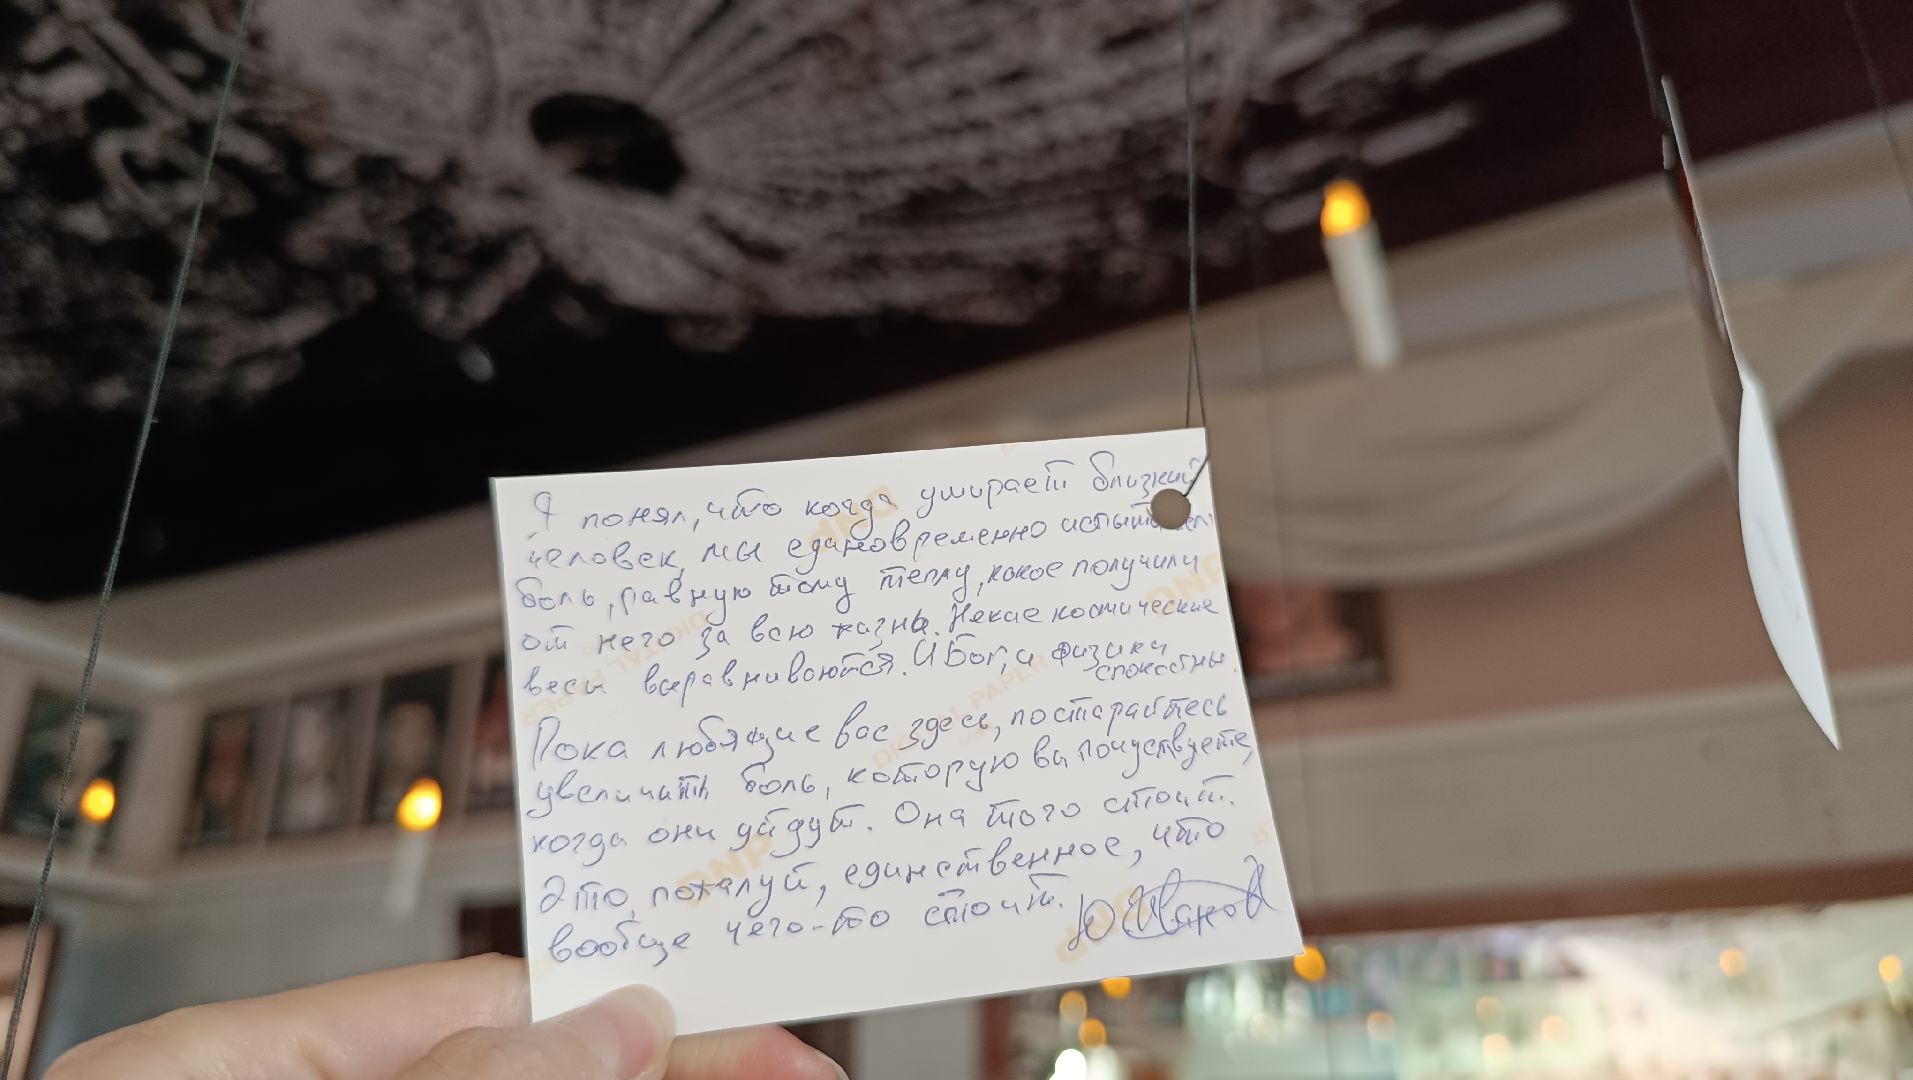 Я понял, что когда умирает близкий
человек, мы единовременно испытываем
боль, равную тому теплу, какое получили
от него за всю жизнь. Некие космические
весы выравниваются. И Бог, и физики
спокойны.
Пока любящие вас здесь, постарайтесь
увеличить боль, которую вы почуствуете,
когда они уйдут. Она того стоит.
Это, пожалуй, единственное, что
вообще чего-то стоит.
Ю Иванов
DNP
DNP
DIGITAL PAPER
DIGITAL PAPER
DNP
DNP